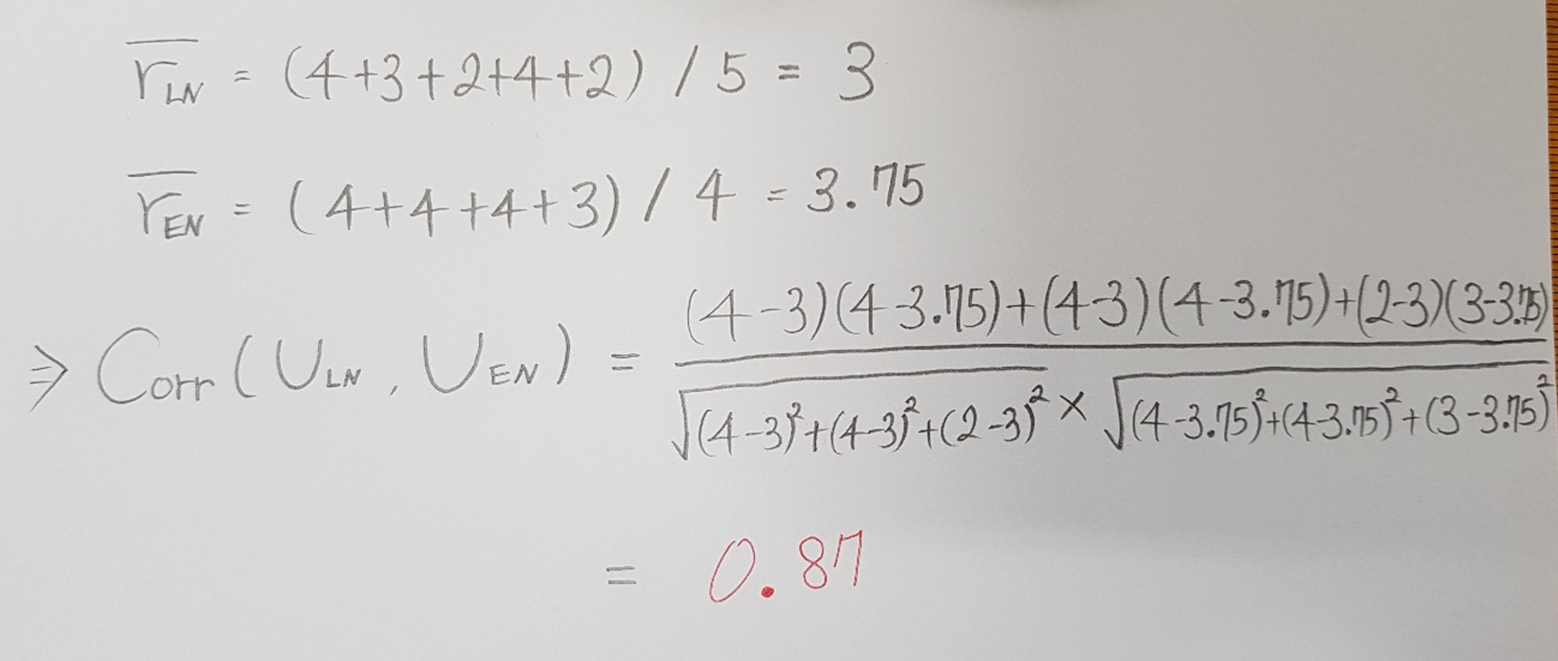 r̅_LN = (4+3+2+4+2) / 5 = 3
r̅_EN = (4+4+4+3) / 4 = 3.75
⇒ Corr(U_LN, U_EN) = ((4-3)(4-3.75)+(4-3)(4-3.75)+(2-3)(3-3.75)) / (√((4-3)²+(4-3)²+(2-3)²) × √((4-3.75)²+(4-3.75)²+(3-3.75)²))
= 0.87